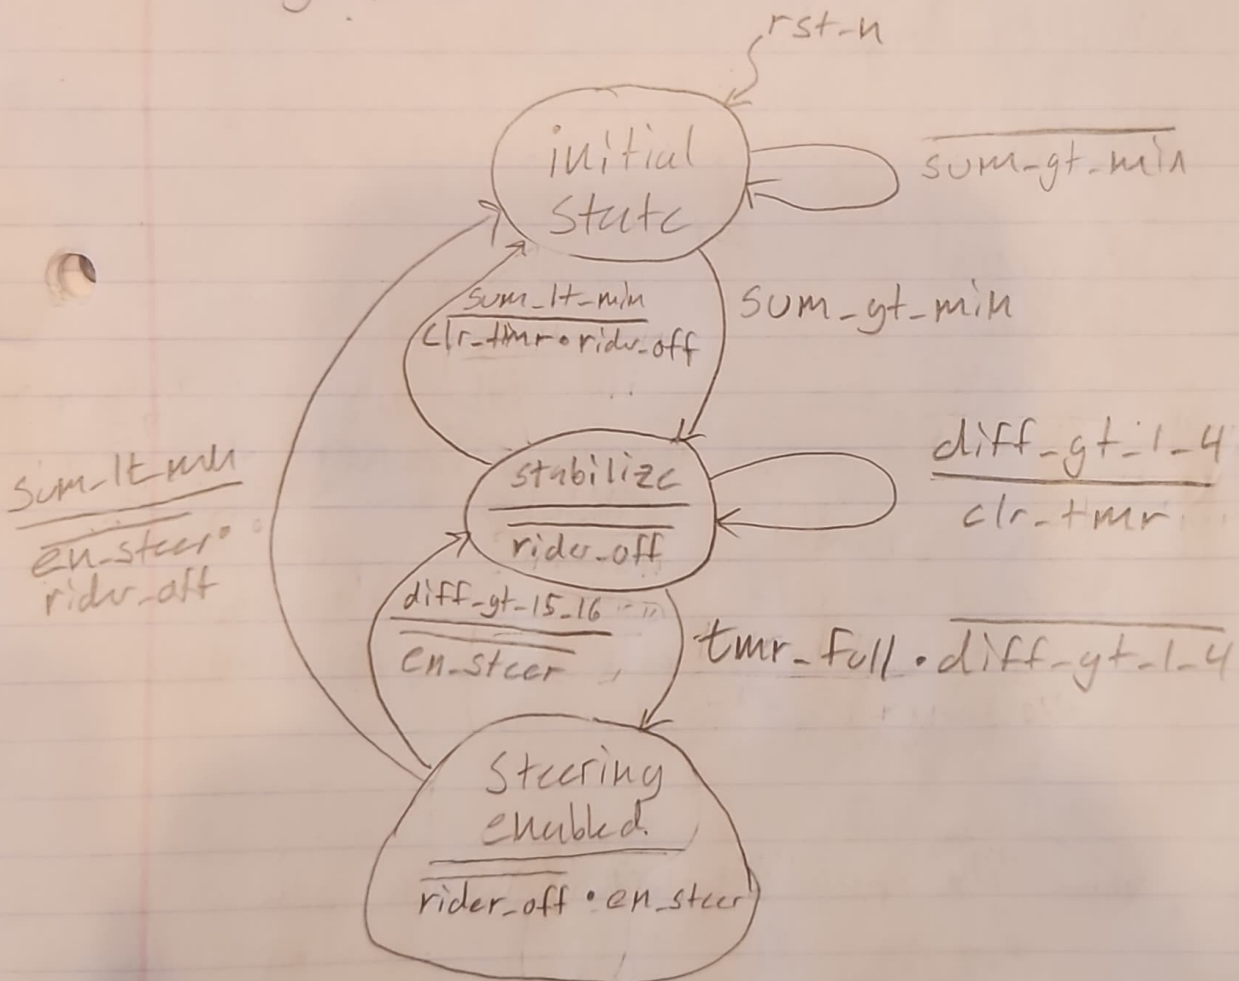 rst_n
initial
state
sum_gt_min
sum_lt_min
clr_tmr • rider_off
sum_gt_min
stabilize
rider_off
diff_gt_1_4
clr_tmr
sum_lt_min
en_steer •
rider_off
diff_gt_15_16
en_steer
tmr_full • diff_gt_1_4
Steering
enabled
rider_off • en_steer